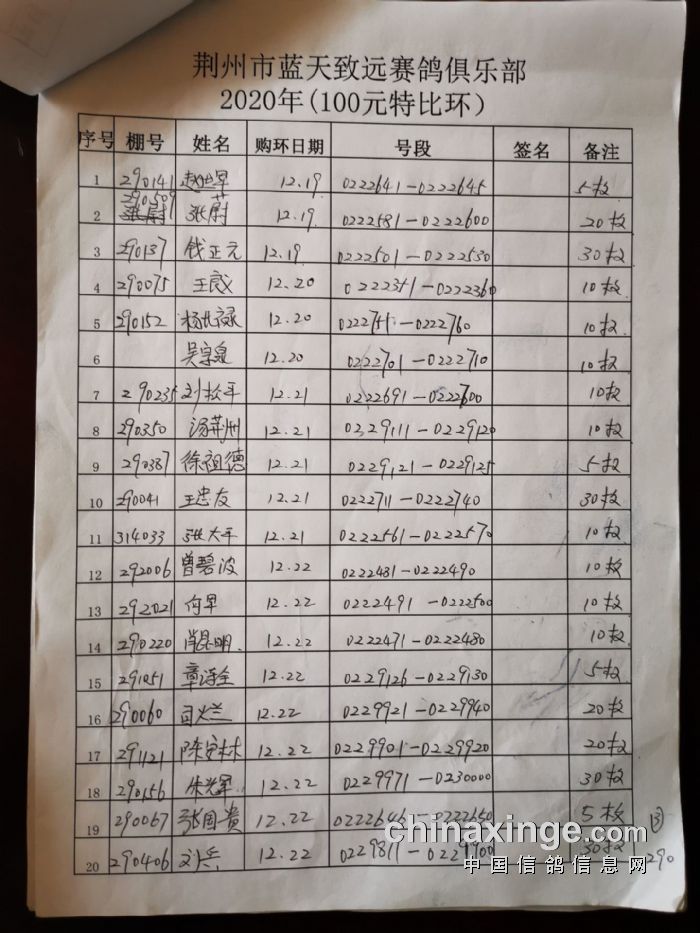 荆州市蓝天致远赛鸽俱乐部
2020年(100元特比环)
序号 棚号 姓名 购环日期 号段 签名 备注
1 290141 12.19 0222641-0222645 5枚
290509
2 张蔚 12.19 0222581-0222600 20枚
3 290137 钱正元 12.19 0222501-0222530 30枚
4 290075 王成 12.20 0222351-0222360 10枚
5 290152 杨世禄 12.20 0222751-0222760 10枚
6 吴宗泉 12.20 0222701-0222710 10枚
7 290235 刘 平 12.21 0222691-0222700 10枚
8 290350 汤荆州 12.21 0229111-0229120 10枚
9 290387 徐祖德 12.21 0229121-0229125 5枚
10 290041 王忠友 12.21 0222711-0222740 30枚
11 314033 张大平 12.21 0222561-0222570 10枚
12 292006 曾碧波 12.22 0222481-0222490 10枚
13 292021 向早 12.22 0222491-0222500 10枚
14 290220 肖昆明 12.22 0222471-0222480 10枚
15 291051 12.22 0229126-0229130 5枚
16 290060 12.22 0229921-0229940 20枚
17 291121 陈安林 12.22 0229901-0229920 20枚
18 290156 朱光军 12.22 0229971-0230000 30枚
19 290067 张国贵 12.22 0222646-0222650 5枚
20 290406 刘兵 12.22 0229811-0229900 30枚
290
chinaxinge.com
中国信鸽信息网